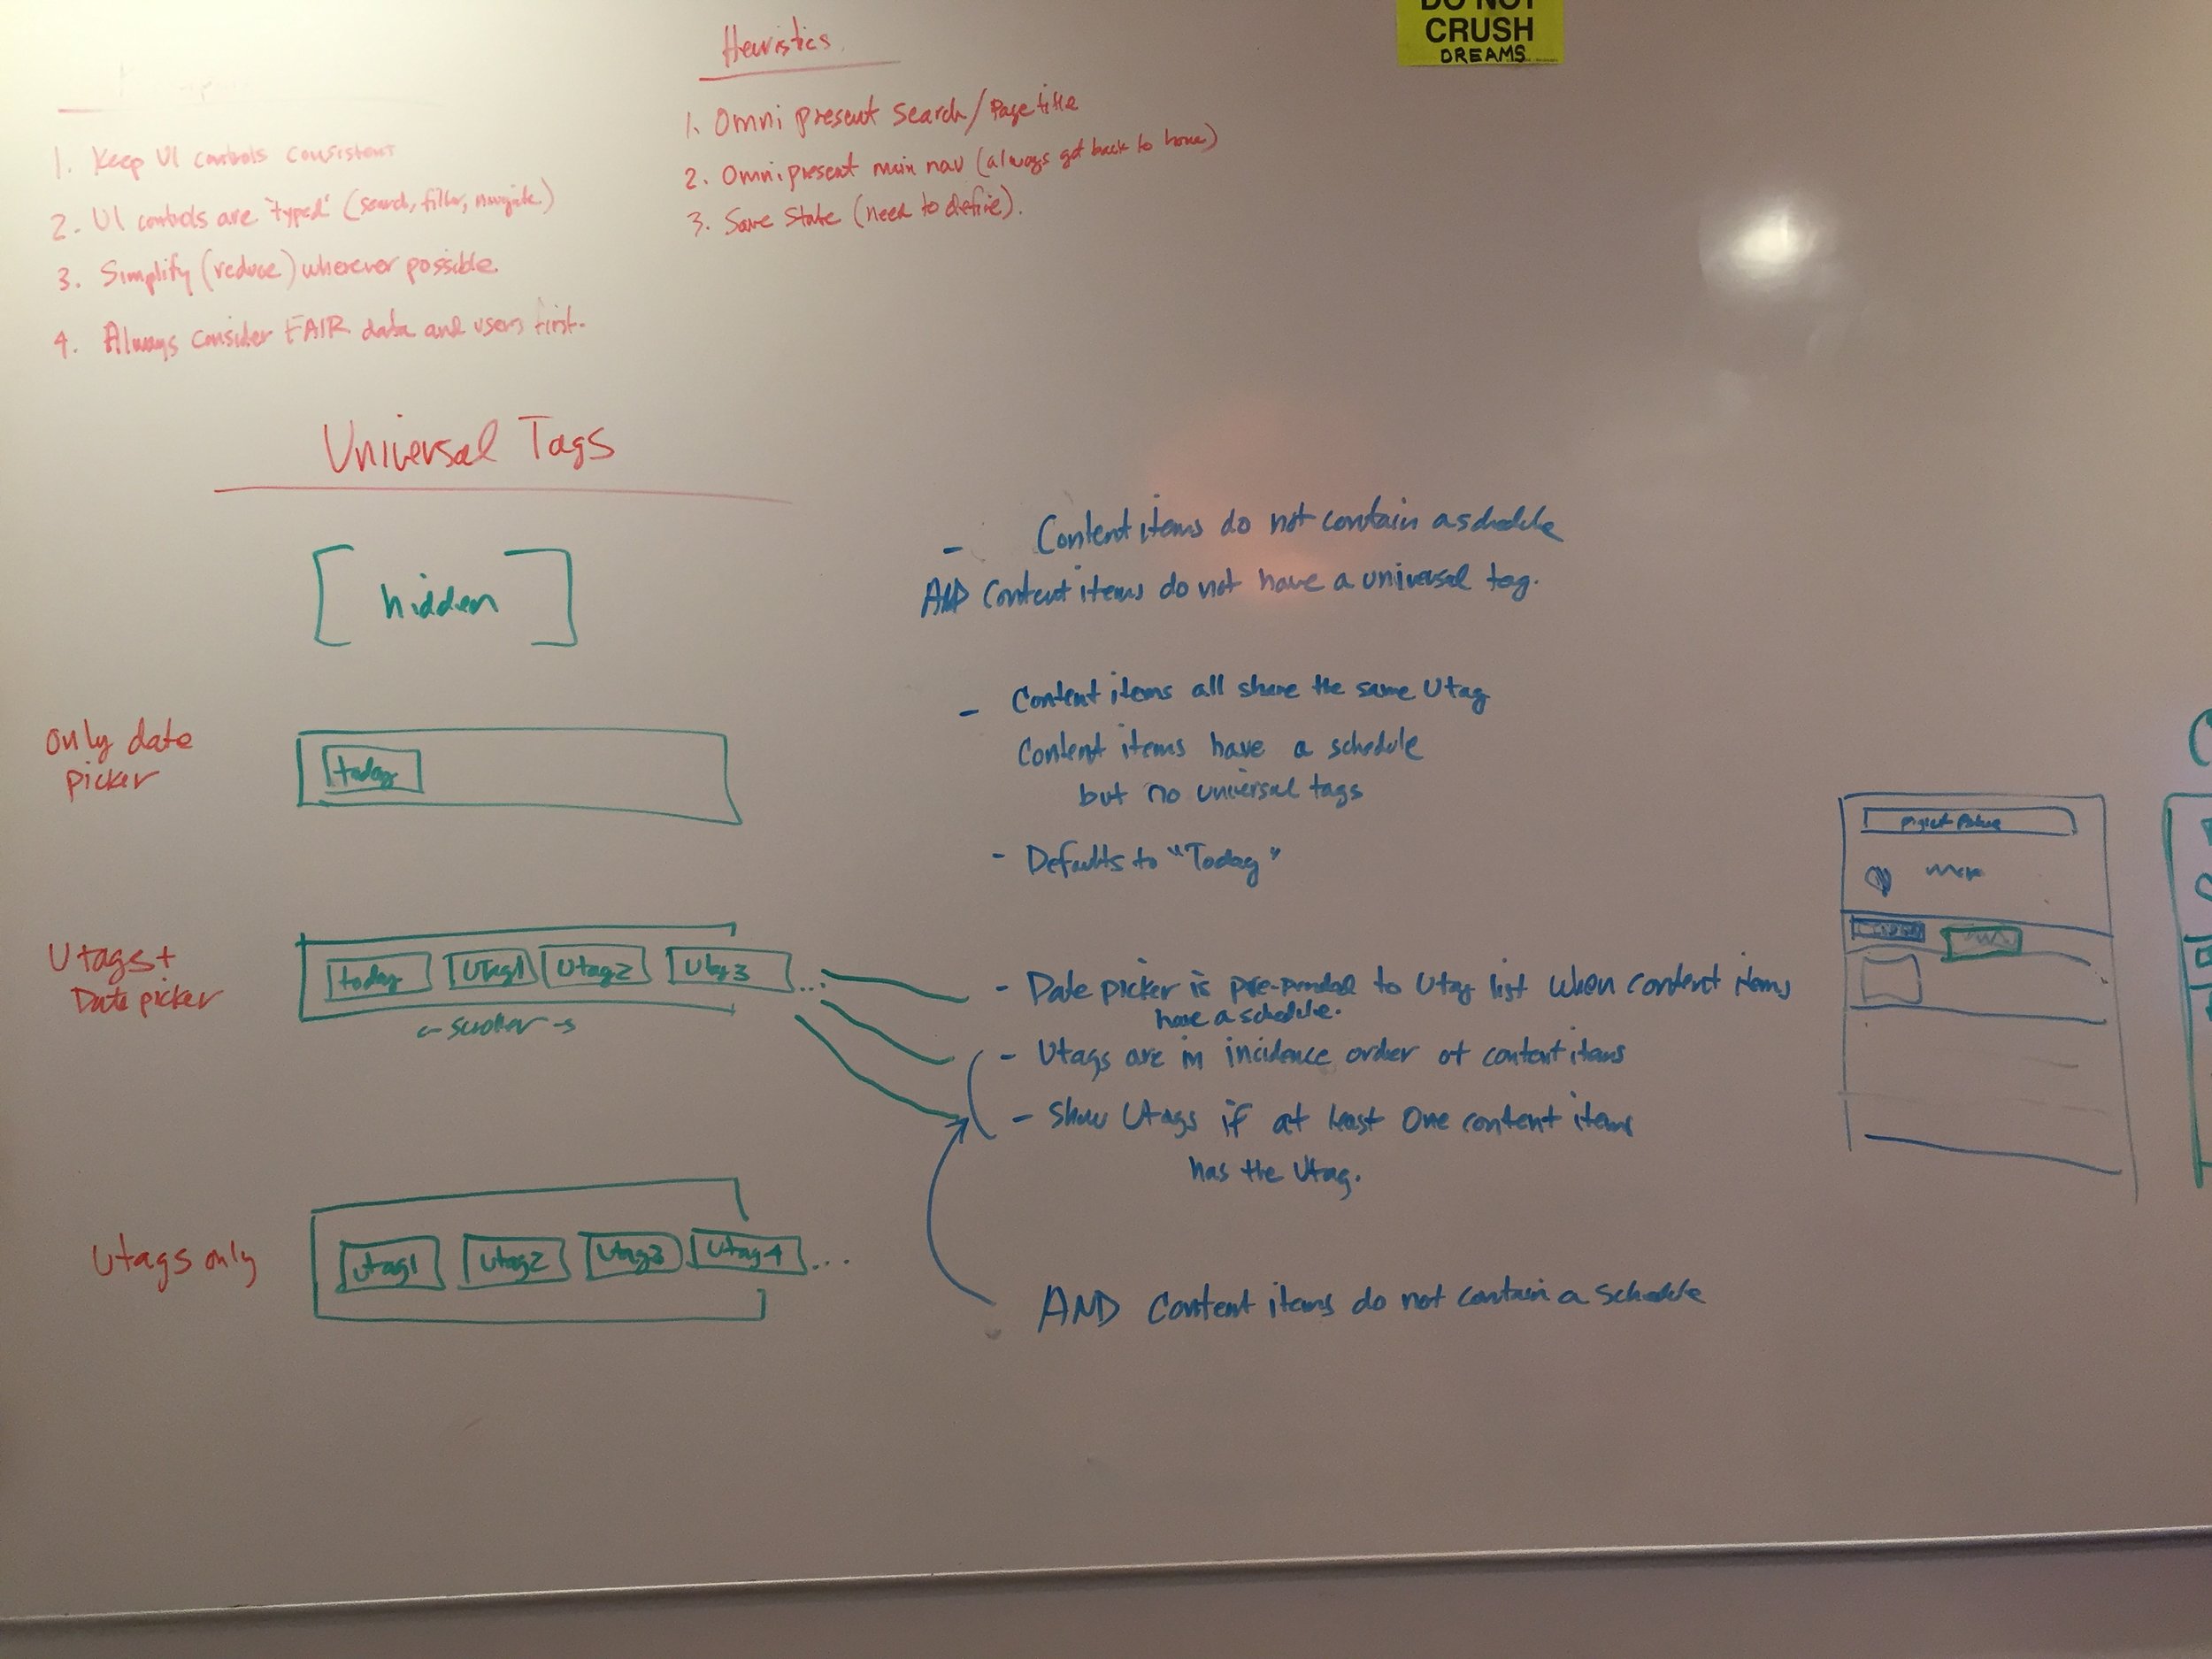 DO NOT
CRUSH
DREAMS
Heuristics.
1. Omni present search/Page title
2. Omnipresent main nav (always get back to home)
3. Save State (need to define).
1. Keep UI controls consistent
2. UI controls are "typed" (search, filter, navigate.)
3. Simplify (reduce) wherever possible.
4. Always consider FAIR data and users first.
Universal Tags
[ hidden ]
- Content items do not contain a schedule
AND Content items do not have a universal tag.
only date
picker
today
- Content items all share the same Utag
Content items have a schedule
but no universal tags
- Defaults to "Today"
Utags +
Date picker
today Utag1 Utag2 Utag3 ...
- Date picker is pre-pended to Utag list when content items
have a schedule.
- Utags are in incidence order of content items
- Show Utags if at least one content items
has the Utag.
Utags only
Utag1 Utag2 Utag3 Utag4 ...
AND Content items do not contain a schedule